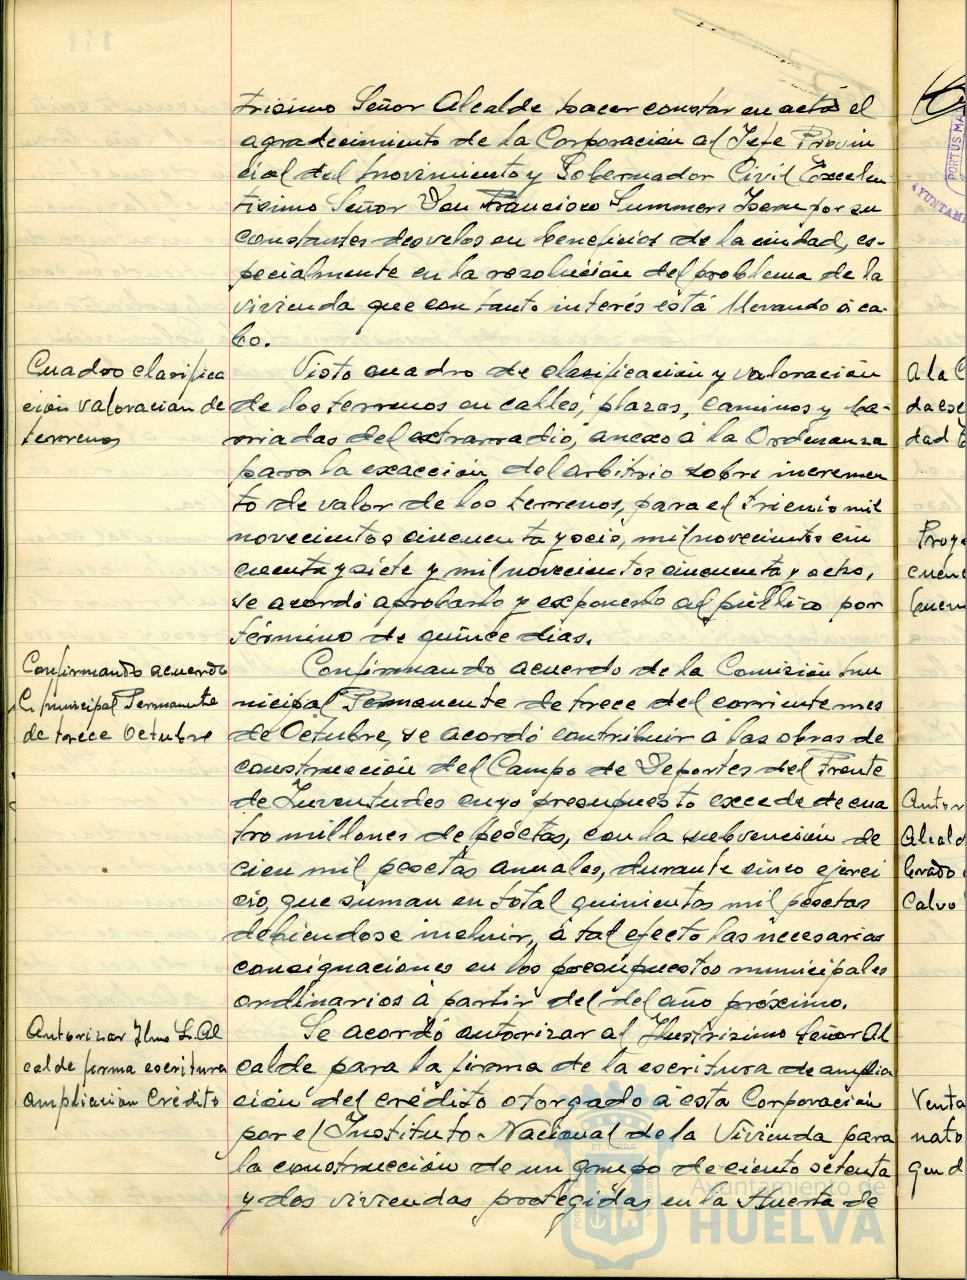 trisimo Señor Alcalde hacer constar en acta el
agradecimiento de la Corporación al Jefe Provin
cial del Movimiento y Gobernador Civil Excelen
tisimo Señor Don Francisco Summers Isern por su
constantes desvelos en beneficios de la ciudad, es-
pecialmente en la resolución del problema de la
vivienda que con tanto interés está llevando á ca-
bo.
Cuadro clasifica
ción valoración de
terrenos
Visto cuadro de clasificación y valoración
de los terrenos en calles, plazas, caminos y ba-
rriadas del extrarradio, anexo á la Ordenanza
para la exacción del arbitrio sobre incremen
to de valor de los terrenos, para el trienio mil
novecientos cincuenta y seis, mil novecientos cin
cuenta y siete y mil novecientos cincuenta y ocho,
se acordó aprobarlo y exponerlo al público por
término de quince dias.
Confirmando acuerdo
C. municipal Permanente
de trece Octubre
Confirmando acuerdo de la Comisión mu
nicipal Permanente de trece del corriente mes
de Octubre, se acordó contribuir á las obras de
construcción del Campo de Deportes del Frente
de Juventudes cuyo presupuesto excede de cua
tro millones de pesetas, con la subvención de
cien mil pesetas anuales, durante cinco ejerci
cio, que suman en total quinientas mil pesetas
debiendose incluir, á tal efecto las necesarias
consignaciones en los presupuestos municipales
ordinarios á partir del del año próximo.
Autorizar Ilmo S. Al
calde firma escritura
ampliación Crédito
Se acordó autorizar al Ilustrisimo Señor Al
calde para la firma de la escritura de amplia
ción del crédito otorgado á esta Corporación
por el Instituto Nacional de la Vivienda para
la construcción de un grupo de ciento setenta
y dos viviendas protegidas en la Huerta de
Ayuntamiento de
HUELVA
a la C
dad
cuen
Autor
Alcald
Calvo
Venta
nato
PORTUS MA
AYUNTAM